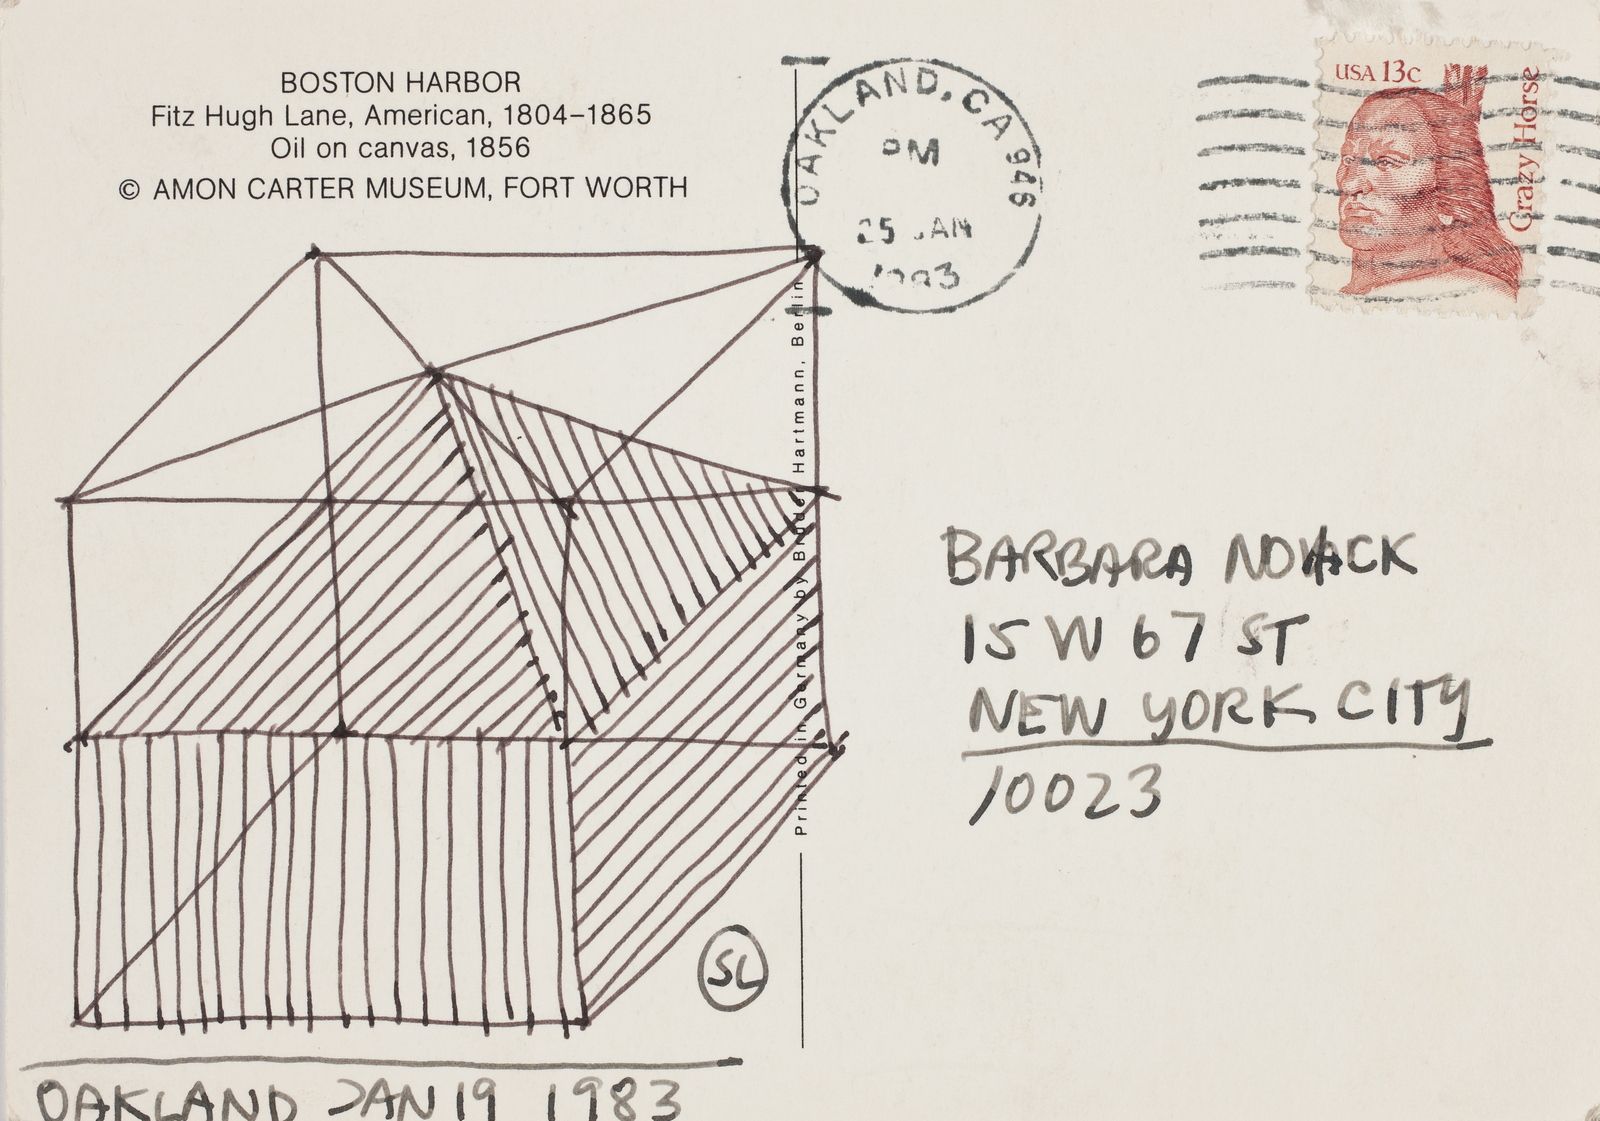 BOSTON HARBOR
Fitz Hugh Lane, American, 1804–1865
Oil on canvas, 1856
© AMON CARTER MUSEUM, FORT WORTH
OAKLAND, CA 946
PM
25 JAN
1983
USA 13c
Crazy Horse
Printed in Germany by Brüder Hartmann, Berlin
BARBARA NOVACK
15 W 67 ST
NEW YORK CITY
10023
SL
OAKLAND JAN 19 1983